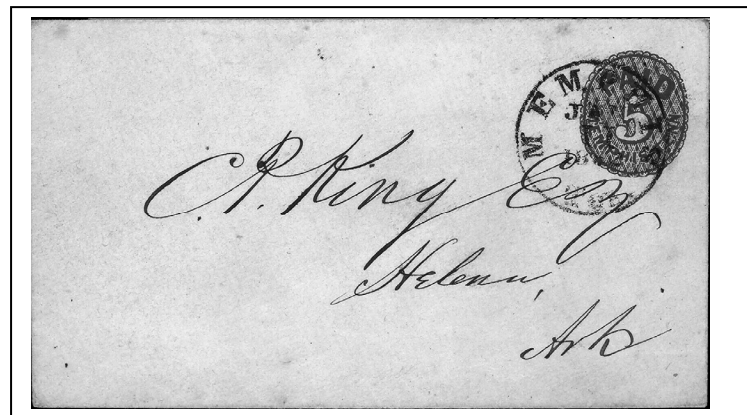 MEMPHIS
PAID
5
C. R. King Esq
Helena,
Ark